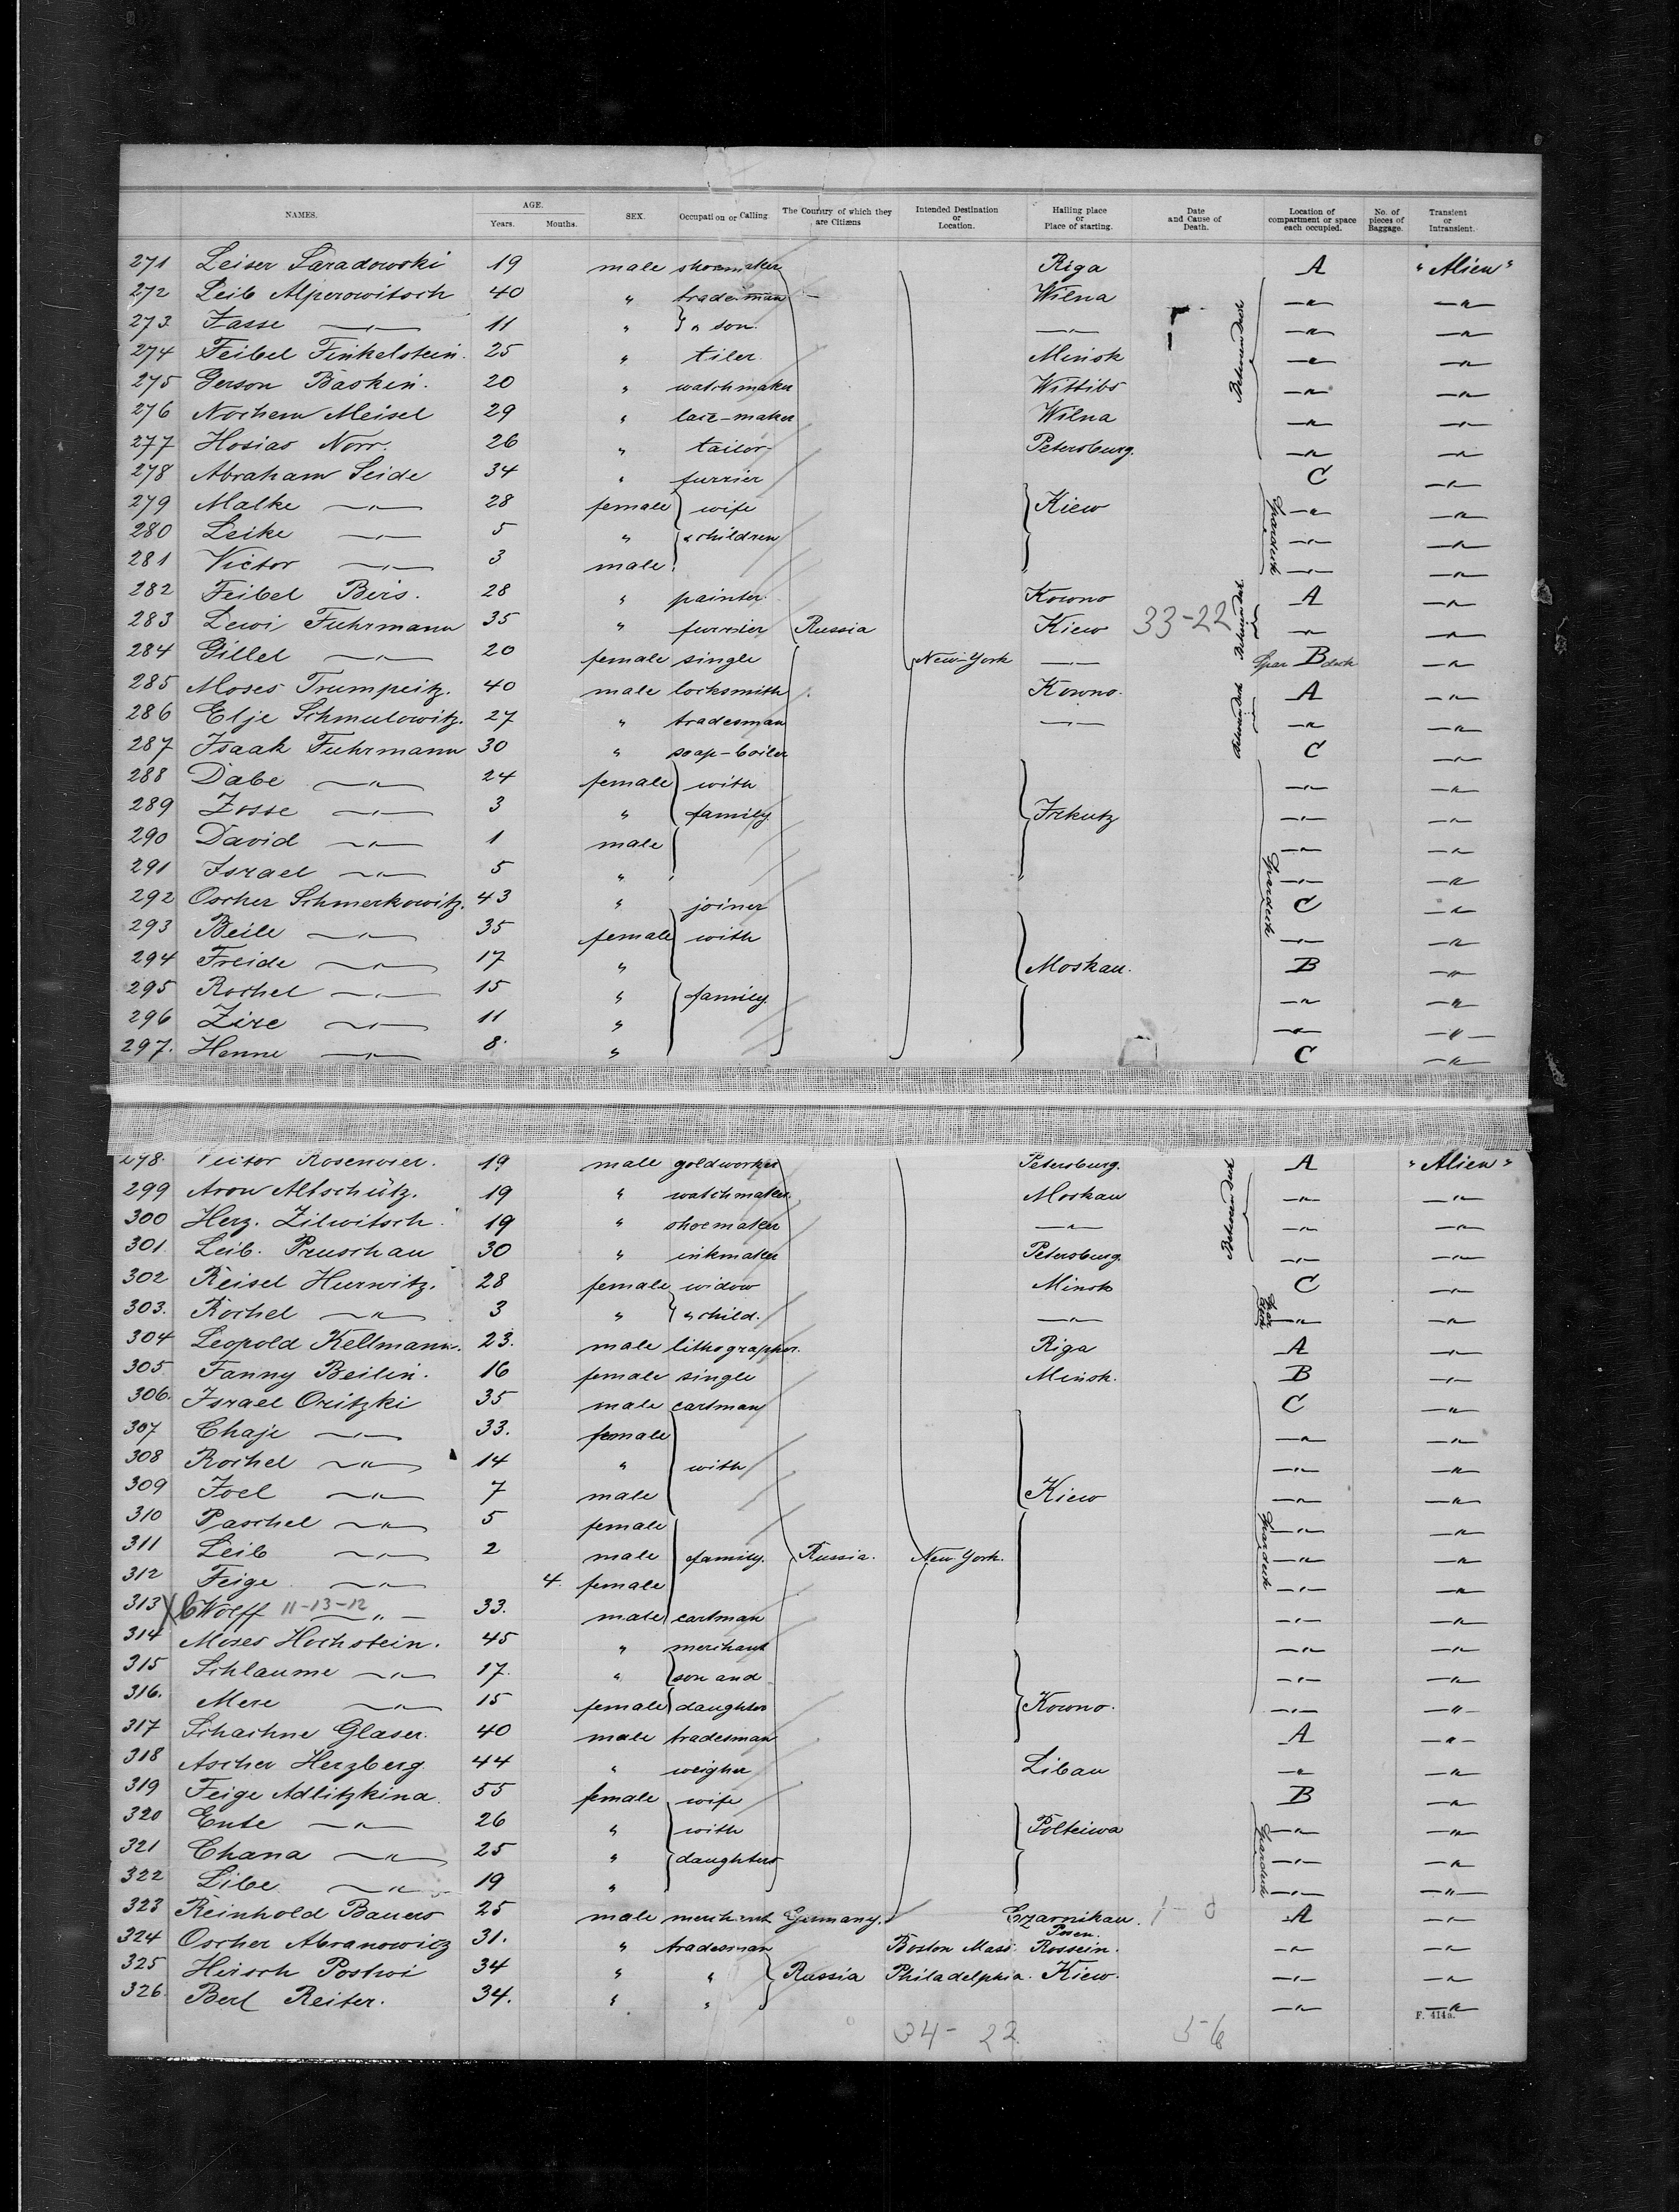 NAMES. AGE. Years. Months. SEX. Occupation or Calling The Country of which they are Citizens Intended Destination or Location. Hailing place or Place of starting. Date and Cause of Death. Location of compartment or space each occupied. No. of pieces of Baggage. Transient or Intransient.
271 Leiser Saradowski 19 male shoemaker Riga A "Alien"
272 Leib Alperowitsch 40 " tradesman Wilna —"— —"—
273 Zasse —"— 11 " " son. —"— —"— —"—
274 Feibel Finkelstein. 25 " tiler. Minsk —"— —"—
275 Gerson Baskin. 20 " watchmaker Wittibs —"— —"—
276 Nochem Meisel 29 " lace-maker Wilna —"— —"—
277 Hosias Norr. 26 " tailor Petersburg. —"— —"—
278 Abraham Seide 34 " furrier C —"—
279 Malke —"— 28 female wife Kiew —"— —"—
280 Leike —"— 5 " " children —"— —"—
281 Victor —"— 3 male —"— —"—
282 Feibel Beis. 28 " painter. Kowno A —"—
283 Lewi Fuhrmann 35 " furrier Russia Kiew 33-22 —"— —"—
284 Gillel —"— 20 female single New-York —"— Spar B deck —"—
285 Moses Trumpeitz. 40 male locksmith Kowno. A —"—
286 Elje Schmulowitz. 27 " tradesman —"— —"— —"—
287 Isaak Fuhrmann 30 " soap-boiler C —"—
288 Dabe —"— 24 female with —"— —"—
289 Zosse —"— 3 " family Irkutz —"— —"—
290 David —"— 1 male —"— —"—
291 Israel —"— 5 " —"— —"—
292 Oscher Schmerkowitz. 43 " joiner C —"—
293 Beile —"— 35 female with —"— —"—
294 Freide —"— 17 " Moskau. B —"—
295 Rochel —"— 15 " family. —"— —"—
296 Zire —"— 11 " —"— —"—
297. Henne —"— 8. " C —"—
298. Victor Rosenoier. 19 male goldworker Petersburg. A "Alien"
299 Aron Altschütz. 19 " watchmaker. Moskau —"— —"—
300 Herz. Zilwitsch. 19 " shoemaker —"— —"— —"—
301. Leib. Pruschan 30 " inkmaker Petersburg. —"— —"—
302 Reisel Hurwitz. 28 female widow Minsk C —"—
303. Rochel —"— 3 " " child. —"— —"— —"—
304 Leopold Kellmann. 23. male lithographer. Riga A —"—
305 Fanny Beilin. 16 female single Minsk. B —"—
306. Israel Oritzki 35 male cartman C —"—
307 Chaje —"— 33. female —"— —"—
308 Rochel —"— 14 " with —"— —"—
309 Joel —"— 7 male Kiew —"— —"—
310 Paschel —"— 5 female —"— —"—
311 Leib —"— 2 male family. Russia. New York. —"— —"—
312 Feige —"— 4. female —"— —"—
313 Wolff 11-13-12 —"— 33. male cartman —"— —"—
314 Moses Hochstein. 45 " merchant —"— —"—
315 Schlaume —"— 17. " son and —"— —"—
316. Mere —"— 15 female daughter Kowno. —"— —"—
317 Schachne Glaser. 40 male tradesman A —"—
318 Ascher Herzberg. 44 " weigher Libau —"— —"—
319 Feige Adlitzkina. 55 female wife B —"—
320 Ente —"— 26 " with Polteiwa —"— —"—
321 Chana —"— 25 " daughters —"— —"—
322 Libe —"— 19 " —"— —"—
323 Reinhold Bauers 25 male merchant Germany. Czarnikau. Posen. A —"—
324 Oscher Abranowicz 31. " tradesman Boston Mass. Rossein. —"— —"—
325 Hirsch Poskoi 34 " " Russia Philadelphia. Kiew. —"— —"—
326. Berl Reiter. 34. " " —"— —"—
34-22 56
F. 414a.